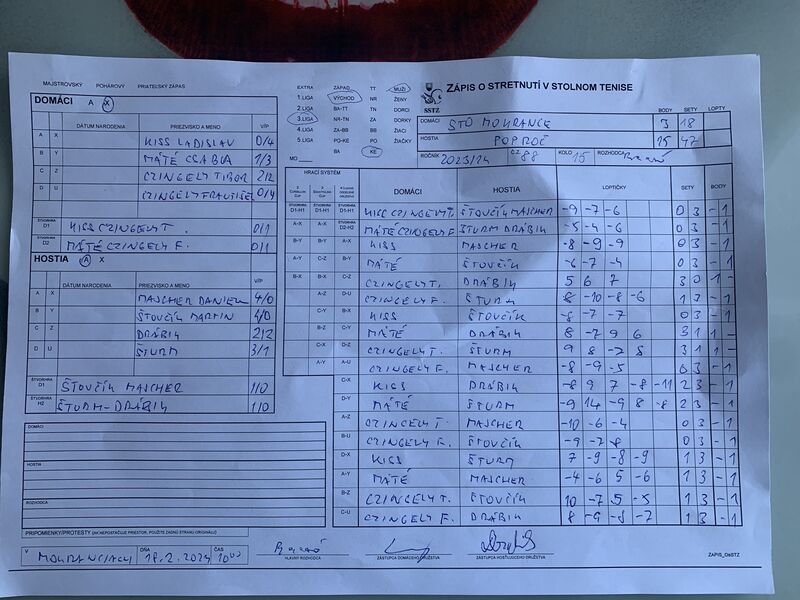 MAJSTROVSKÝ POHÁROVÝ PRIATEĽSKÝ ZÁPAS
DOMÁCI A X
DÁTUM NARODENIA PRIEZVISKO A MENO V/P
A X KISS LADISLAV 0/4
B Y MÁTÉ CSABA 1/3
C Z CZINGELY TIBOR 2/2
D U CZINGELY FRANTIŠEK 0/4
ŠTVORHRA D1 KISS CZINGELY T. 0/1
ŠTVORHRA D2 MÁTÉ CZINGELY F. 0/1
HOSTIA A X
DÁTUM NARODENIA PRIEZVISKO A MENO V/P
A X MASCHER DANIEL 4/0
B Y ŠTOVČÍK MARTIN 4/0
C Z DRÁBIK 2/2
D U ŠTURM 3/1
ŠTVORHRA D1 ŠTOVČÍK MASCHER 1/0
ŠTVORHRA H2 ŠTURM-DRÁBIK 1/0
DOMÁCI
HOSTIA
ROZHODCA
PRIPOMIENKY/PROTESTY (AK NEPOSTAČUJE PRIESTOR, POUŽITE ZADNÚ STRANU ORIGINÁLU)
V MOKRANCIACH DŇA 18.2.2024 ČAS 10 00
HLAVNÝ ROZHODCA ZÁSTUPCA DOMÁCEHO DRUŽSTVA ZÁSTUPCA HOSŤUJÚCEHO DRUŽSTVA
ZÁPIS_OsSTZ
EXTRA ZÁPAD TT MUŽI
1.LIGA VÝCHOD NR ŽENY
2.LIGA BA-TT TN DORCI
3.LIGA NR-TN ZA DORKY
4.LIGA ZA-BB BB ŽIACI
5.LIGA PO-KE PO ŽIAČKY
MO BA KE
SSTZ
ZÁPIS O STRETNUTÍ V STOLNOM TENISE
BODY SETY LOPTY
DOMÁCI STO MOKRANCE 3 18
HOSTIA POPROČ 15 47
ROČNÍK 2023/24 ČZ 88 KOLO 15 ROZHODCA
HRACÍ SYSTÉM DOMÁCI HOSTIA LOPTIČKY SETY BODY
D1-H1 D1-H1 D1-H1 KISS CZINGELY T. ŠTOVČÍK MASCHER -9 -7 -6 0 3 - 1
A-X A-X D2-H2 MÁTÉ CZINGELY F. ŠTURM DRÁBIK -5 -4 -6 0 3 - 1
B-Y B-Y A-X KISS MASCHER -8 -9 -9 0 3 - 1
A-Y C-Z B-Y MÁTÉ ŠTOVČÍK -6 -7 -4 0 3 - 1
B-X B-X C-Z CZINGELY T. DRÁBIK 5 6 7 3 0 1 -
A-Z D-U CZINGELY F. ŠTURM 8 -10 -8 -6 1 3 - 1
C-Y B-X KISS ŠTOVČÍK -8 -7 -7 0 3 - 1
B-Z C-Y MÁTÉ DRÁBIK 8 -7 9 6 3 1 1 -
C-X D-Z CZINGELY T. ŠTURM 9 8 -7 8 3 1 1 -
A-Y A-U CZINGELY F. MASCHER -8 -9 -5 0 3 - 1
C-X KISS DRÁBIK -8 9 7 -8 -11 2 3 - 1
D-Y MÁTÉ ŠTURM -9 14 -9 8 -8 2 3 - 1
A-Z CZINGELY T. MASCHER -10 -6 -4 0 3 - 1
B-U CZINGELY F. ŠTOVČÍK -9 -7 -8 0 3 - 1
D-X KISS ŠTURM 7 -9 -8 -9 1 3 - 1
A-Y MÁTÉ MASCHER -4 -6 5 -6 1 3 - 1
B-Z CZINGELY T. ŠTOVČÍK 10 -7 5 -5 1 3 - 1
C-U CZINGELY F. DRÁBIK 8 -9 -8 -7 1 3 - 1